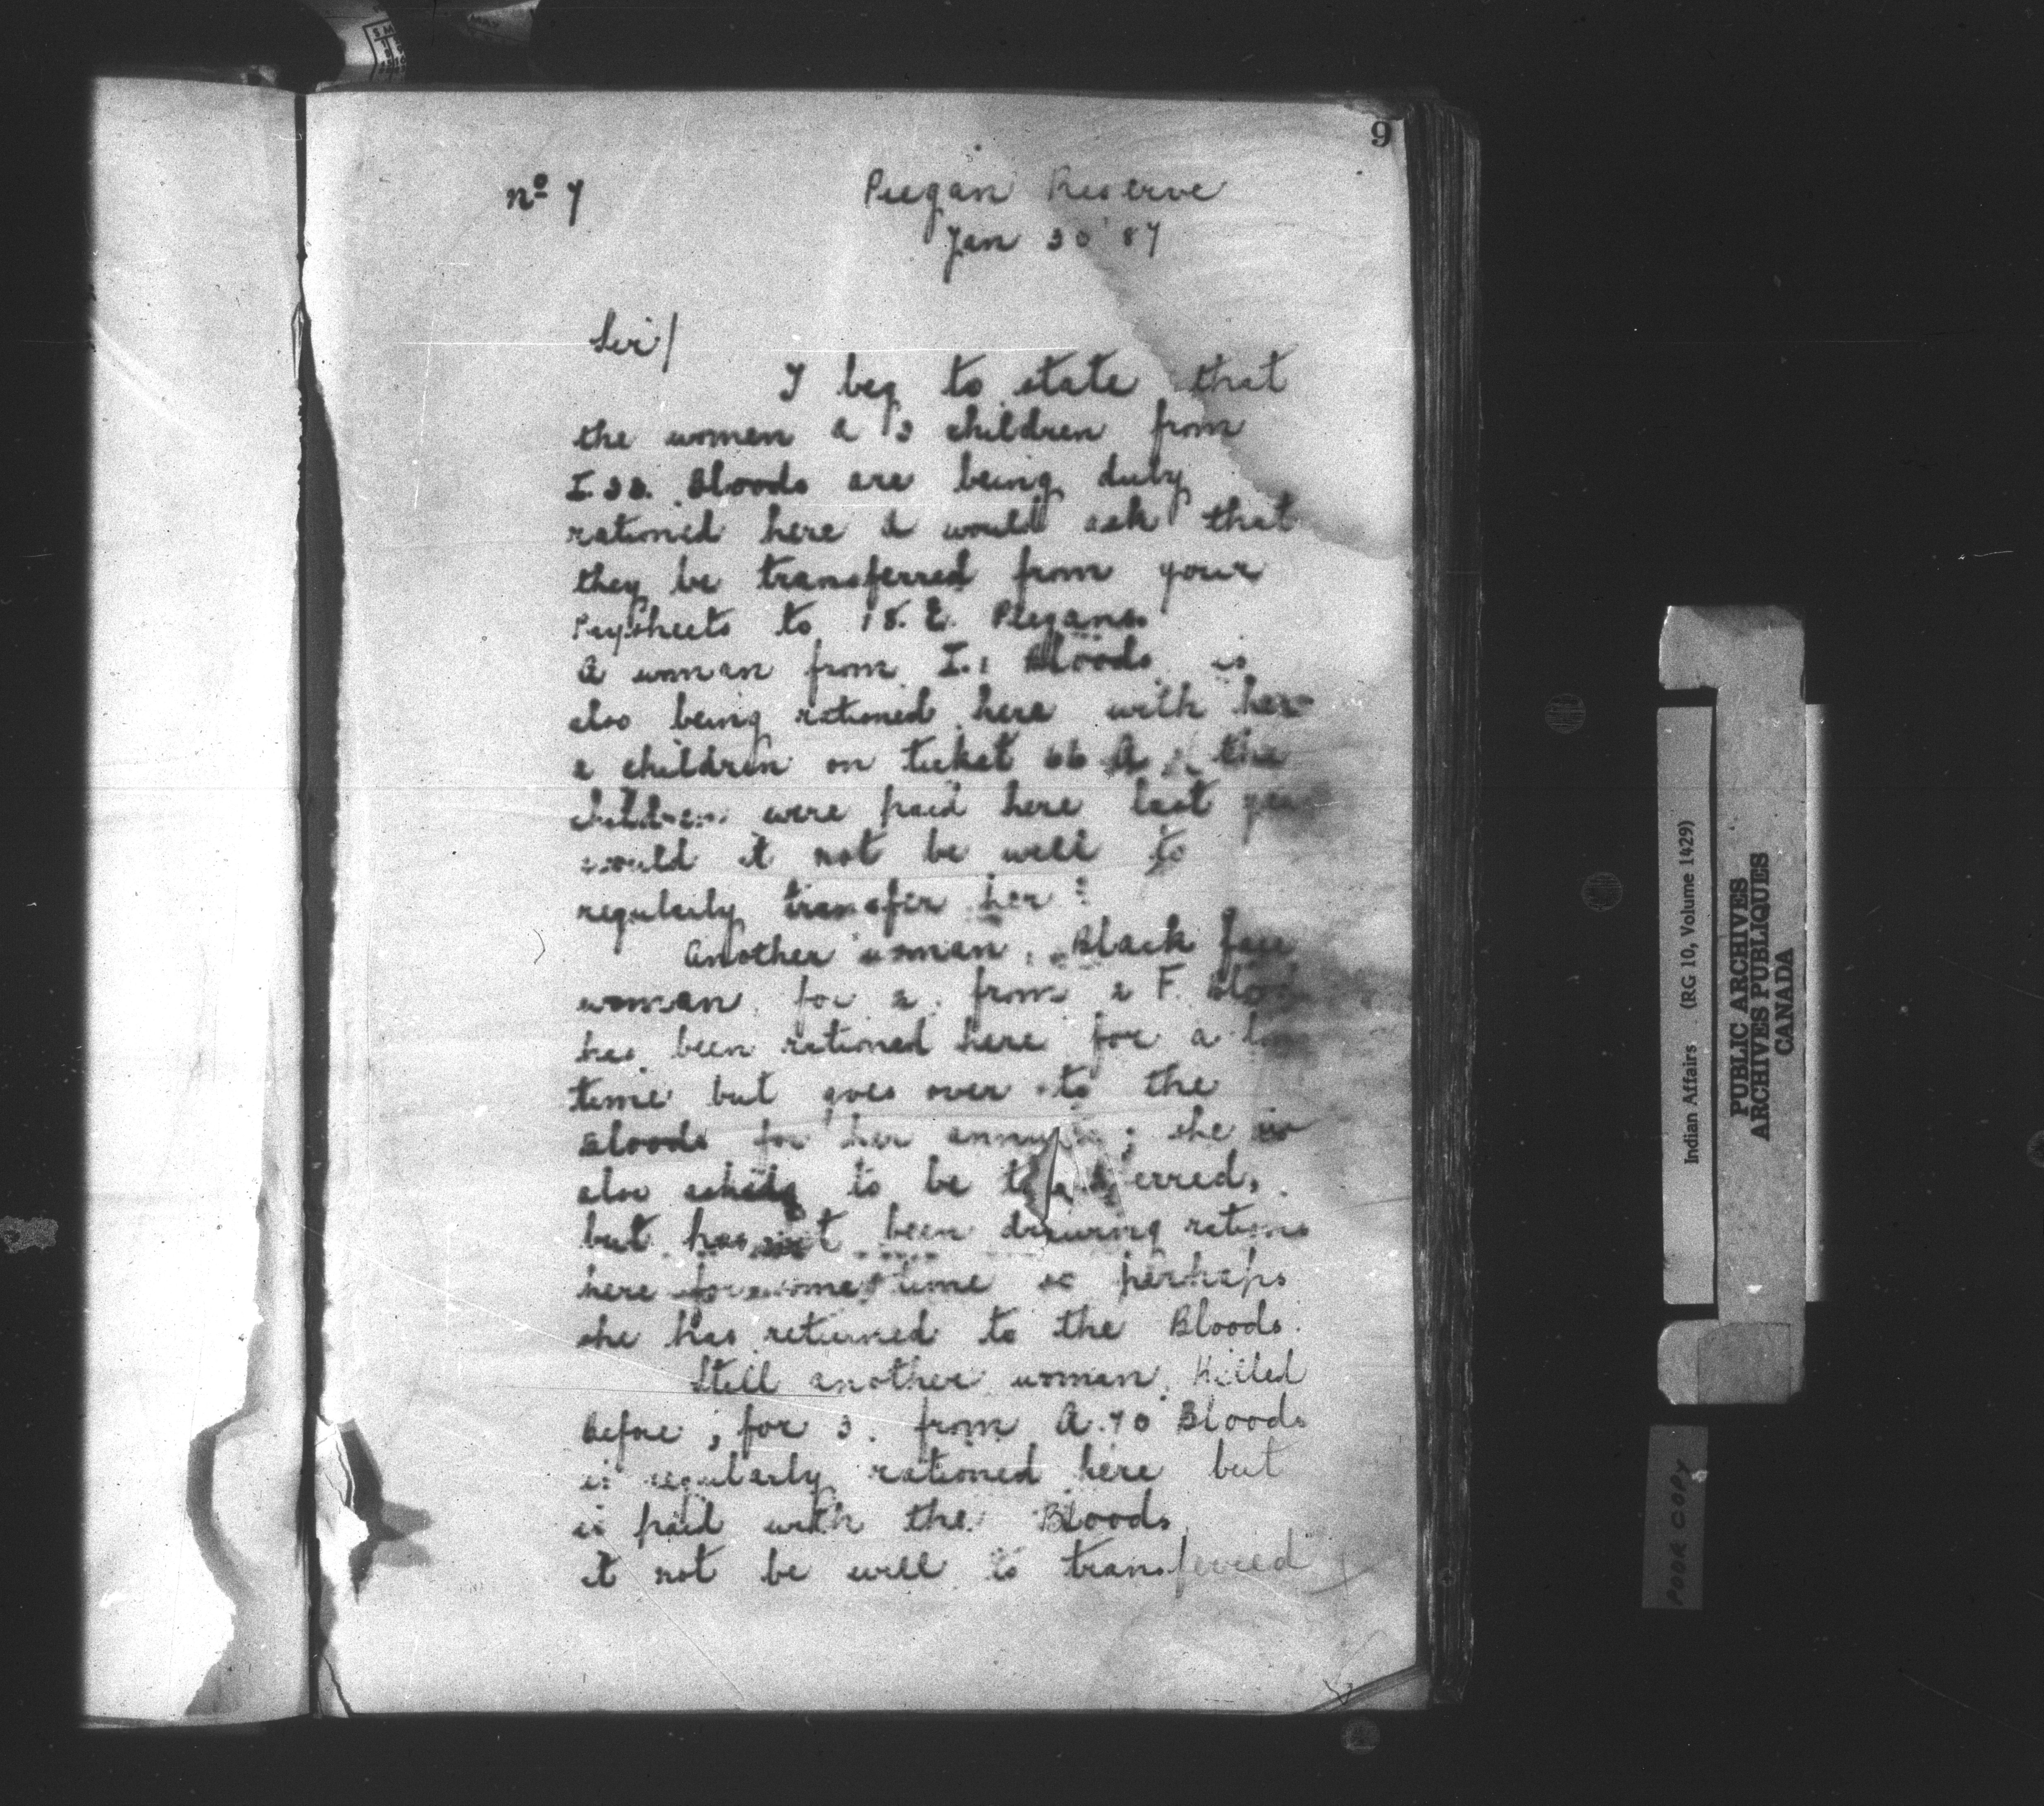 9
No 7 Piegan Reserve
Jan 30 '87
Sir/
I beg to state that
the women & 3 children from
Bloods are being duly
rationed here & would ask that
they be transferred from your
Paysheets to 18. E. Piegans.
A woman from I. 1 Bloods is
also being rationed here with her
2 children on ticket 66 A the
children were paid here last
would it not be well to
regularly transfer her?
Another woman, Black face
woman for 2. from 2 F.
has been rationed here for a
time but goes over to the
Bloods for her ; she is
also asking to be
but has not been drawing rations
here for some time so perhaps
she has returned to the Bloods.
Still another woman, Killed
Before, for 3. from A. 70 Bloods
is regularly rationed here but
is paid with the Bloods
it not be well to transferred
Indian Affairs (RG 10, Volume 1429)
PUBLIC ARCHIVES
ARCHIVES PUBLIQUES
CANADA
POOR COPY